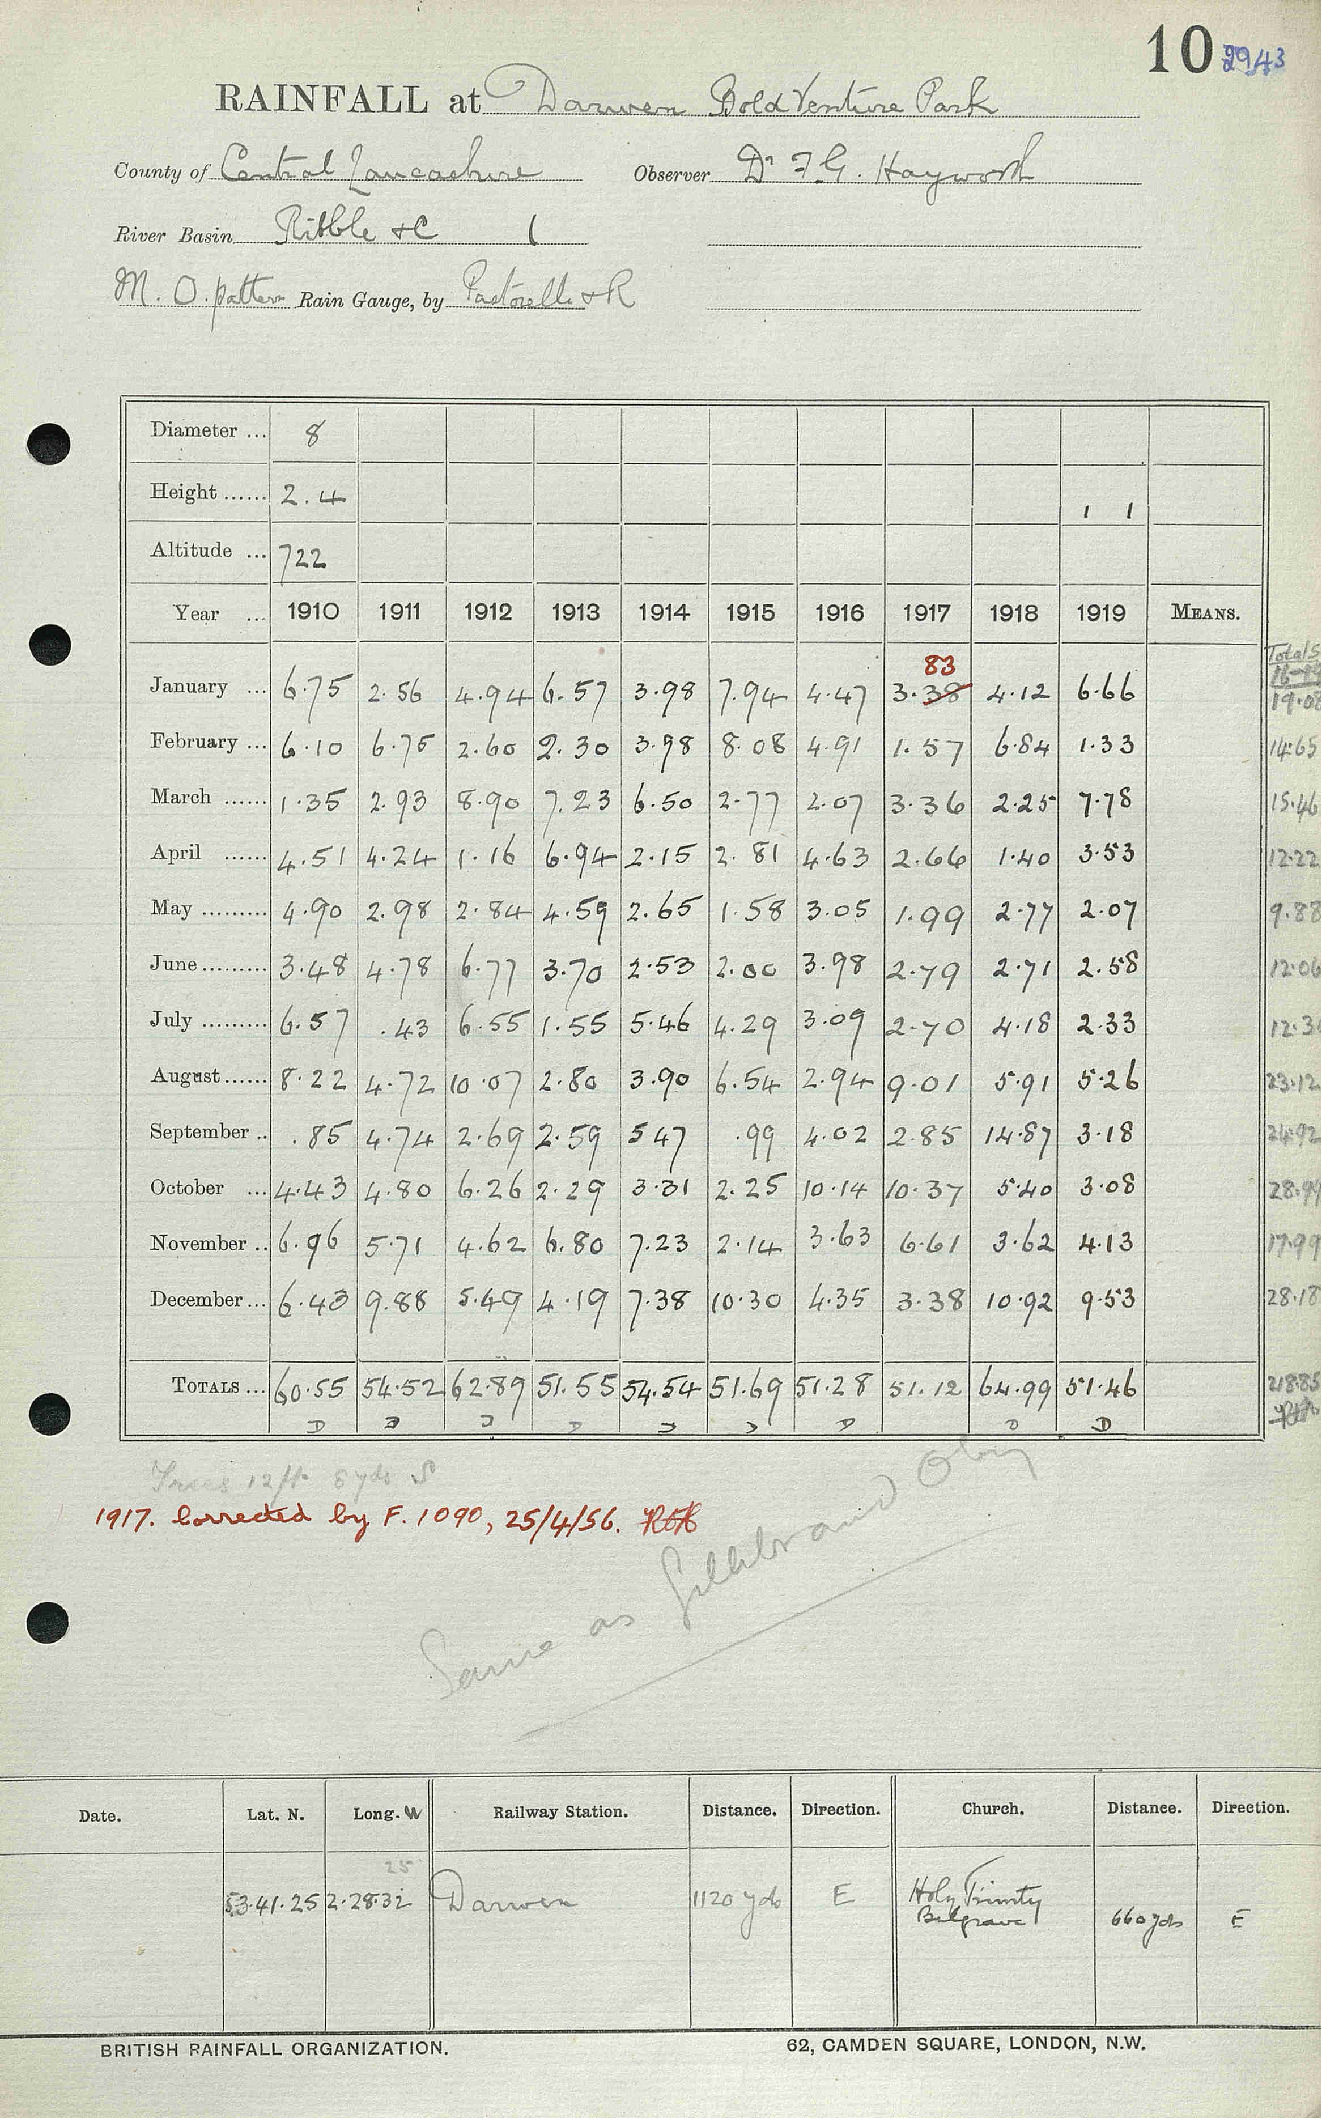 10 2943
RAINFALL at Darwen Bold Venture Park
County of Central Lancashire Observer Dr F.G. Hayworth
River Basin Ribble &C 1
M. O. pattern Rain Gauge, by Pastorelli & R
Diameter ... 8
Height ...... 2.4 1 1
Altitude ... 722
Year ... 1910 1911 1912 1913 1914 1915 1916 1917 1918 1919 MEANS. Totals
83
January ... 6.75 2.56 4.94 6.57 3.98 7.94 4.47 3.38 4.12 6.66 19.08
February ... 6.10 6.75 2.60 2.30 3.98 8.08 4.91 1.57 6.84 1.33 14.65
March ...... 1.35 2.93 8.90 7.23 6.50 2.77 2.07 3.36 2.25 7.78 15.46
April ...... 4.51 4.24 1.16 6.94 2.15 2.81 4.63 2.66 1.40 3.53 12.22
May ......... 4.90 2.98 2.84 4.59 2.65 1.58 3.05 1.99 2.77 2.07 9.88
June ......... 3.48 4.78 6.77 3.70 2.53 2.00 3.98 2.79 2.71 2.58 12.06
July ......... 6.57 .43 6.55 1.55 5.46 4.29 3.09 2.70 4.18 2.33
August ...... 8.22 4.72 10.07 2.80 3.90 6.54 2.94 9.01 5.91 5.26 23.12
September .. .85 4.74 2.69 2.59 5 47 .99 4.02 2.85 14.87 3.18 24.92
October ... 4.43 4.80 6.26 2.29 3.31 2.25 10.14 10.37 5.40 3.08 28.99
November .. 6.96 5.71 4.62 6.80 7.23 2.14 3.63 6.61 3.62 4.13 17.99
December ... 6.43 9.88 5.49 4.19 7.38 10.30 4.35 3.38 10.92 9.53 28.18
TOTALS ... 60.55 54.52 62.89 51.55 54.54 51.69 51.28 51.12 64.99 51.46 218.85
D D D D D D D D D
Trees 12ft 8 yds S
1917. Corrected by F. 1090, 25/4/56.
Same as
Date. Lat. N. Long. W Railway Station. Distance. Direction. Church. Distance. Direction.
25
53.41.25 2.28.32 Darwen 1120 yds E Holy Trinity
Belgrave 660 yds E
BRITISH RAINFALL ORGANIZATION. 62, CAMDEN SQUARE, LONDON, N.W.